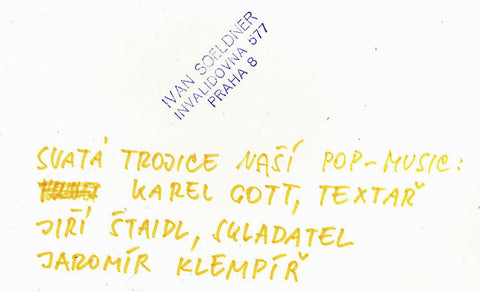 IVAN SOELDNER
INVALIDOVNA 577
PRAHA 8
SVATÁ TROJICE NAŠÍ POP-MUSIC:
KAREL GOTT, TEXTAŘ
JIŘÍ ŠTAIDL, SKLADATEL
JAROMÍR KLEMPÍŘ